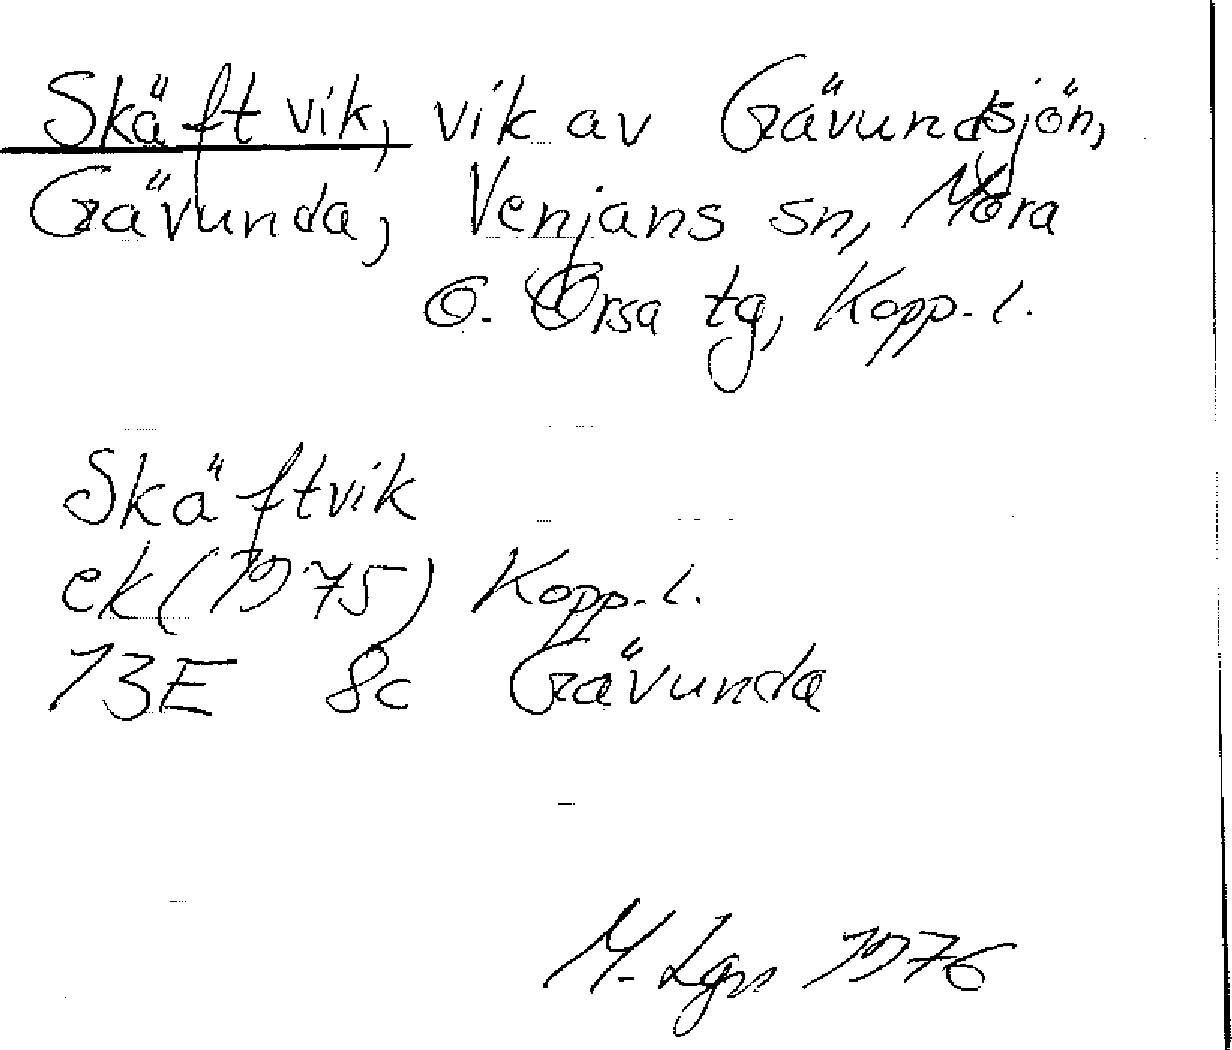 Skäftvik, vik av Gävundsjön,
Gävunda, Venjans sn, Mora
o. Orsa tg, Kopp. l.
Skäftvik
ek (1975) Kopp. l.
13E 8c Gävunda
M. Lgn 1976